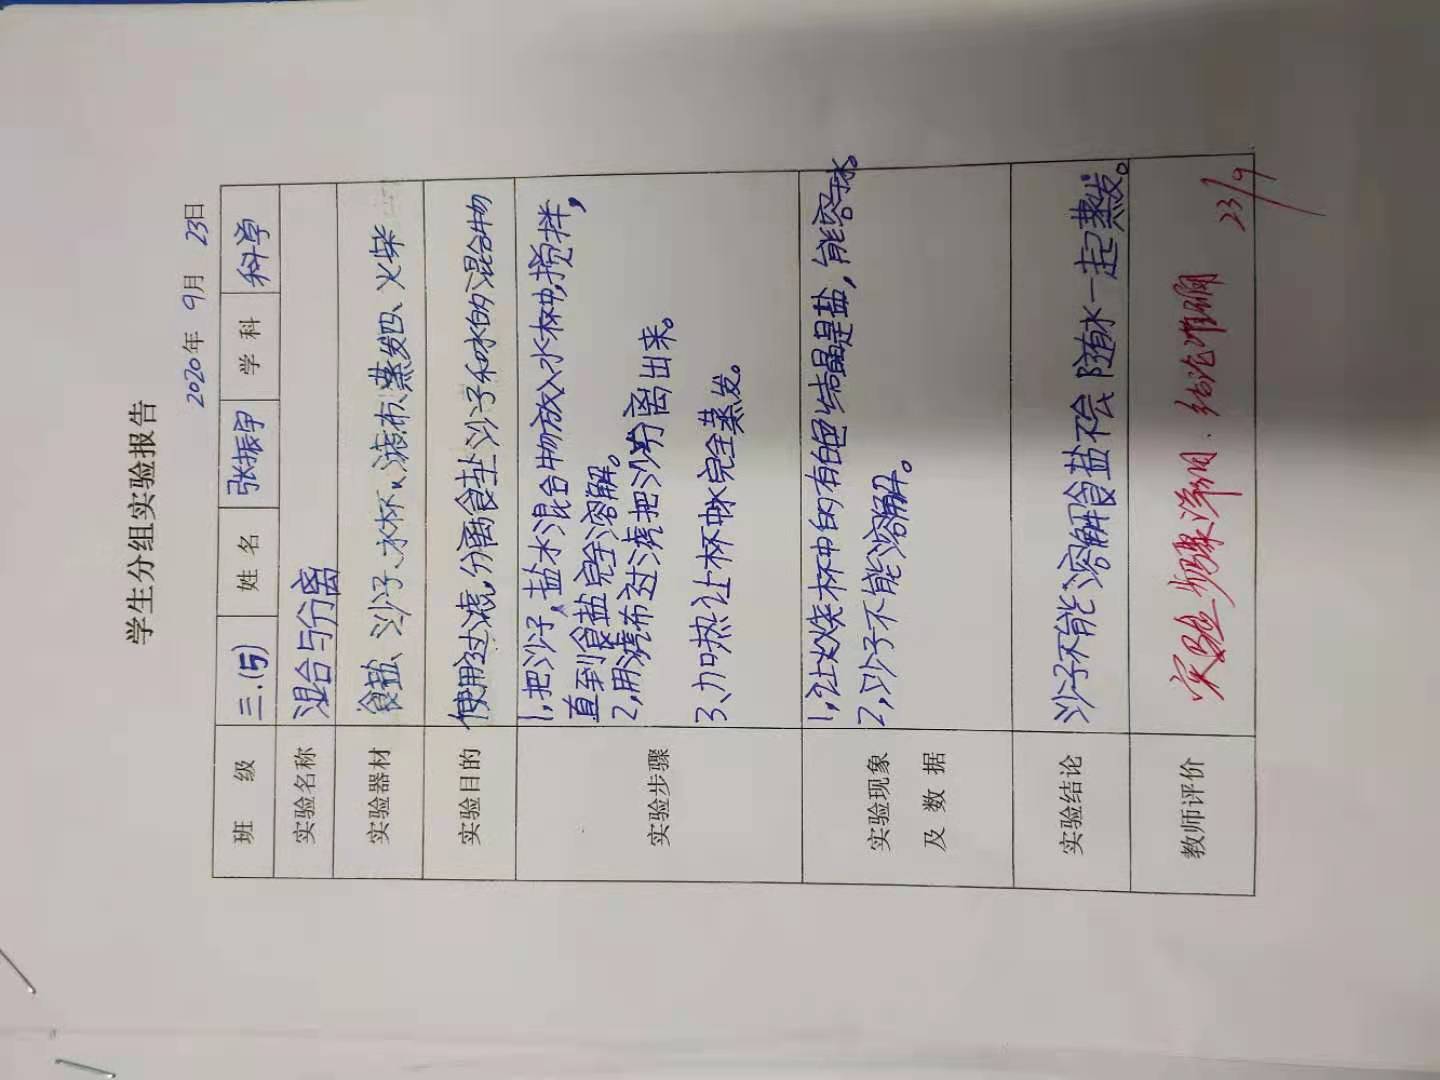 学生分组实验报告
2020年 9月 23日
班 级 三.(5) 姓 名 张振宇 学 科 科学
实验名称 混合与分离
实验器材 食盐、沙子、水杯、滤布、蒸发皿、火柴
实验目的 使用过滤,分离食盐沙子和水的混合物
实验步骤 1,把沙子,盐水混合物放入水杯中,搅拌,
直到食盐完全溶解。
2,用滤布过滤把沙分离出来。
3、加热让杯中水完全蒸发。
实验现象 1,让火烧杯中的有白色结晶是盐,能溶于水。
及 数 据 2,沙子不能溶解。
实验结论 沙子不能溶解食盐不会随水一起蒸发。
教师评价 实验步骤详细.结论准确
23/9